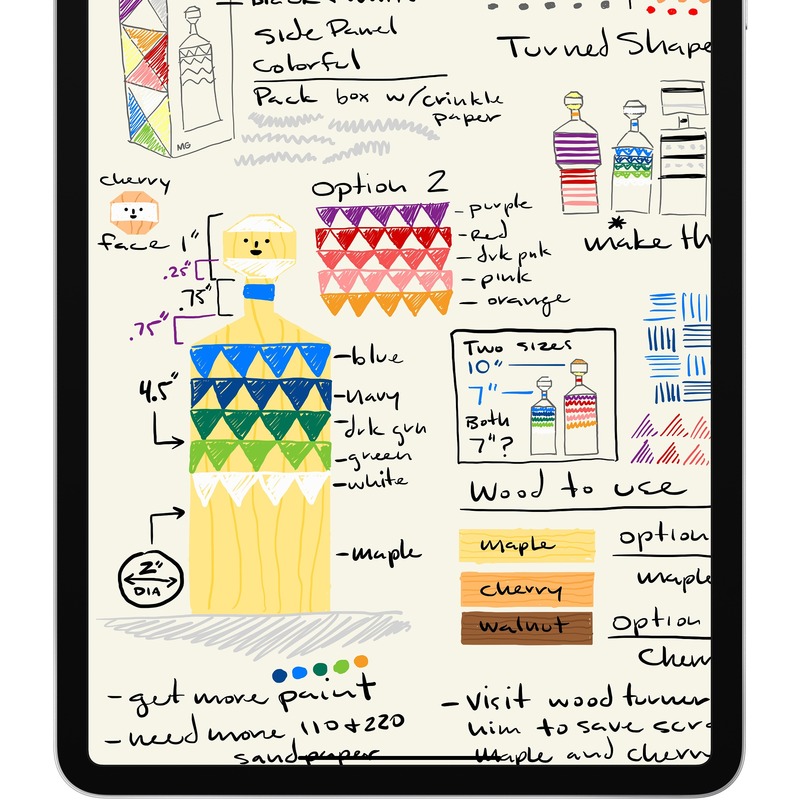 Side Panel
Colorful
Pack box w/crinkle
paper
MG
Turned Shape
cherry
face
1"
.25"
.75"
.75"
4.5"
2"
DIA
Option 2
purple
Red
drk pnk
pink
orange
make th
blue
navy
drk grn
green
white
maple
Two sizes
10"
7"
Both
7"?
Wood to use
maple
cherry
walnut
option
maple
option
Cherr
-get more paint
-need more 110 + 220
sandpaper
-visit wood turner
him to save scr
maple and cherr